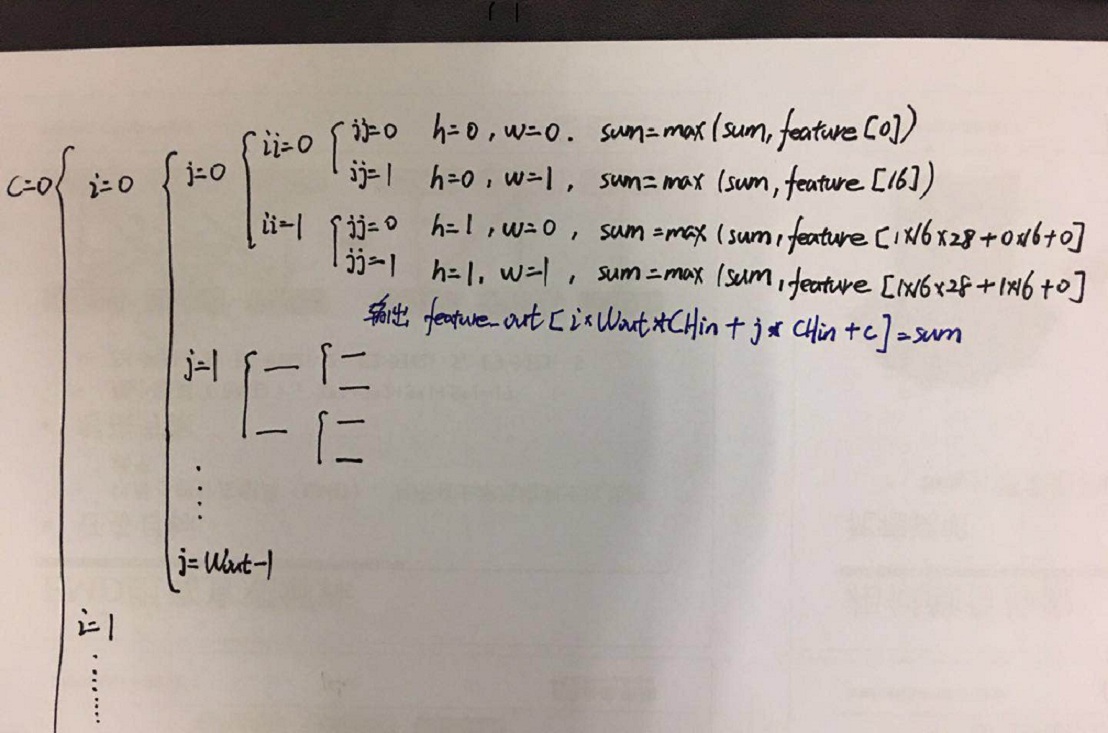 c=0 i=0 j=0 ii=0 jj=0 h=0, w=0. sum=max(sum, feature[0])
jj=1 h=0, w=1, sum=max(sum, feature[16])
ii=1 jj=0 h=1, w=0, sum=max(sum, feature[1×16×28+0×16+0]
jj=1 h=1, w=1, sum=max(sum, feature[1×16×28+1×16+0]
输出 feature_out[i*Wout*CHin + j* CHin +c]=sum
j=1
j=Wout-1
i=1